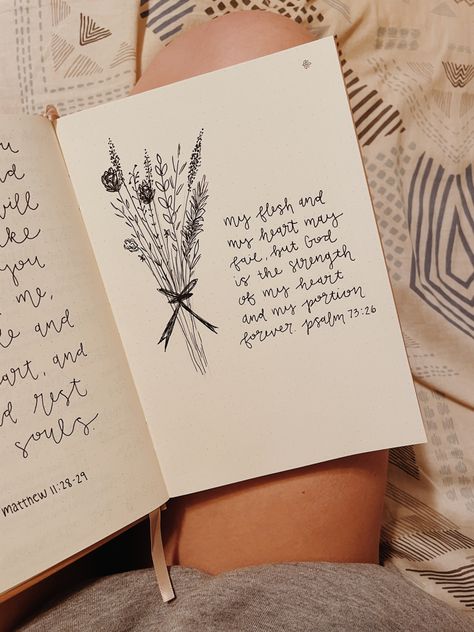 will
you
me,
and
and
rest
souls.
matthew 11:28-29
my flesh and
my heart may
fail, but God
is the strength
of my heart
and my portion
forever. psalm 73:26